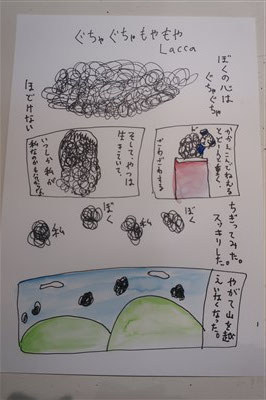 ぐちゃぐちゃもやもや
Lacca
ぼくの心は
ぐちゃぐちゃ
ほどけない
かかえこんでねえると
どんどん重く、
ざわざわする
そして、やつは
生きていて、
いつしか私が
私なのか
ちぎってみた。
スッキリした。
ぼく
私
ぼく
私
やがて山を越え
いなくなった。